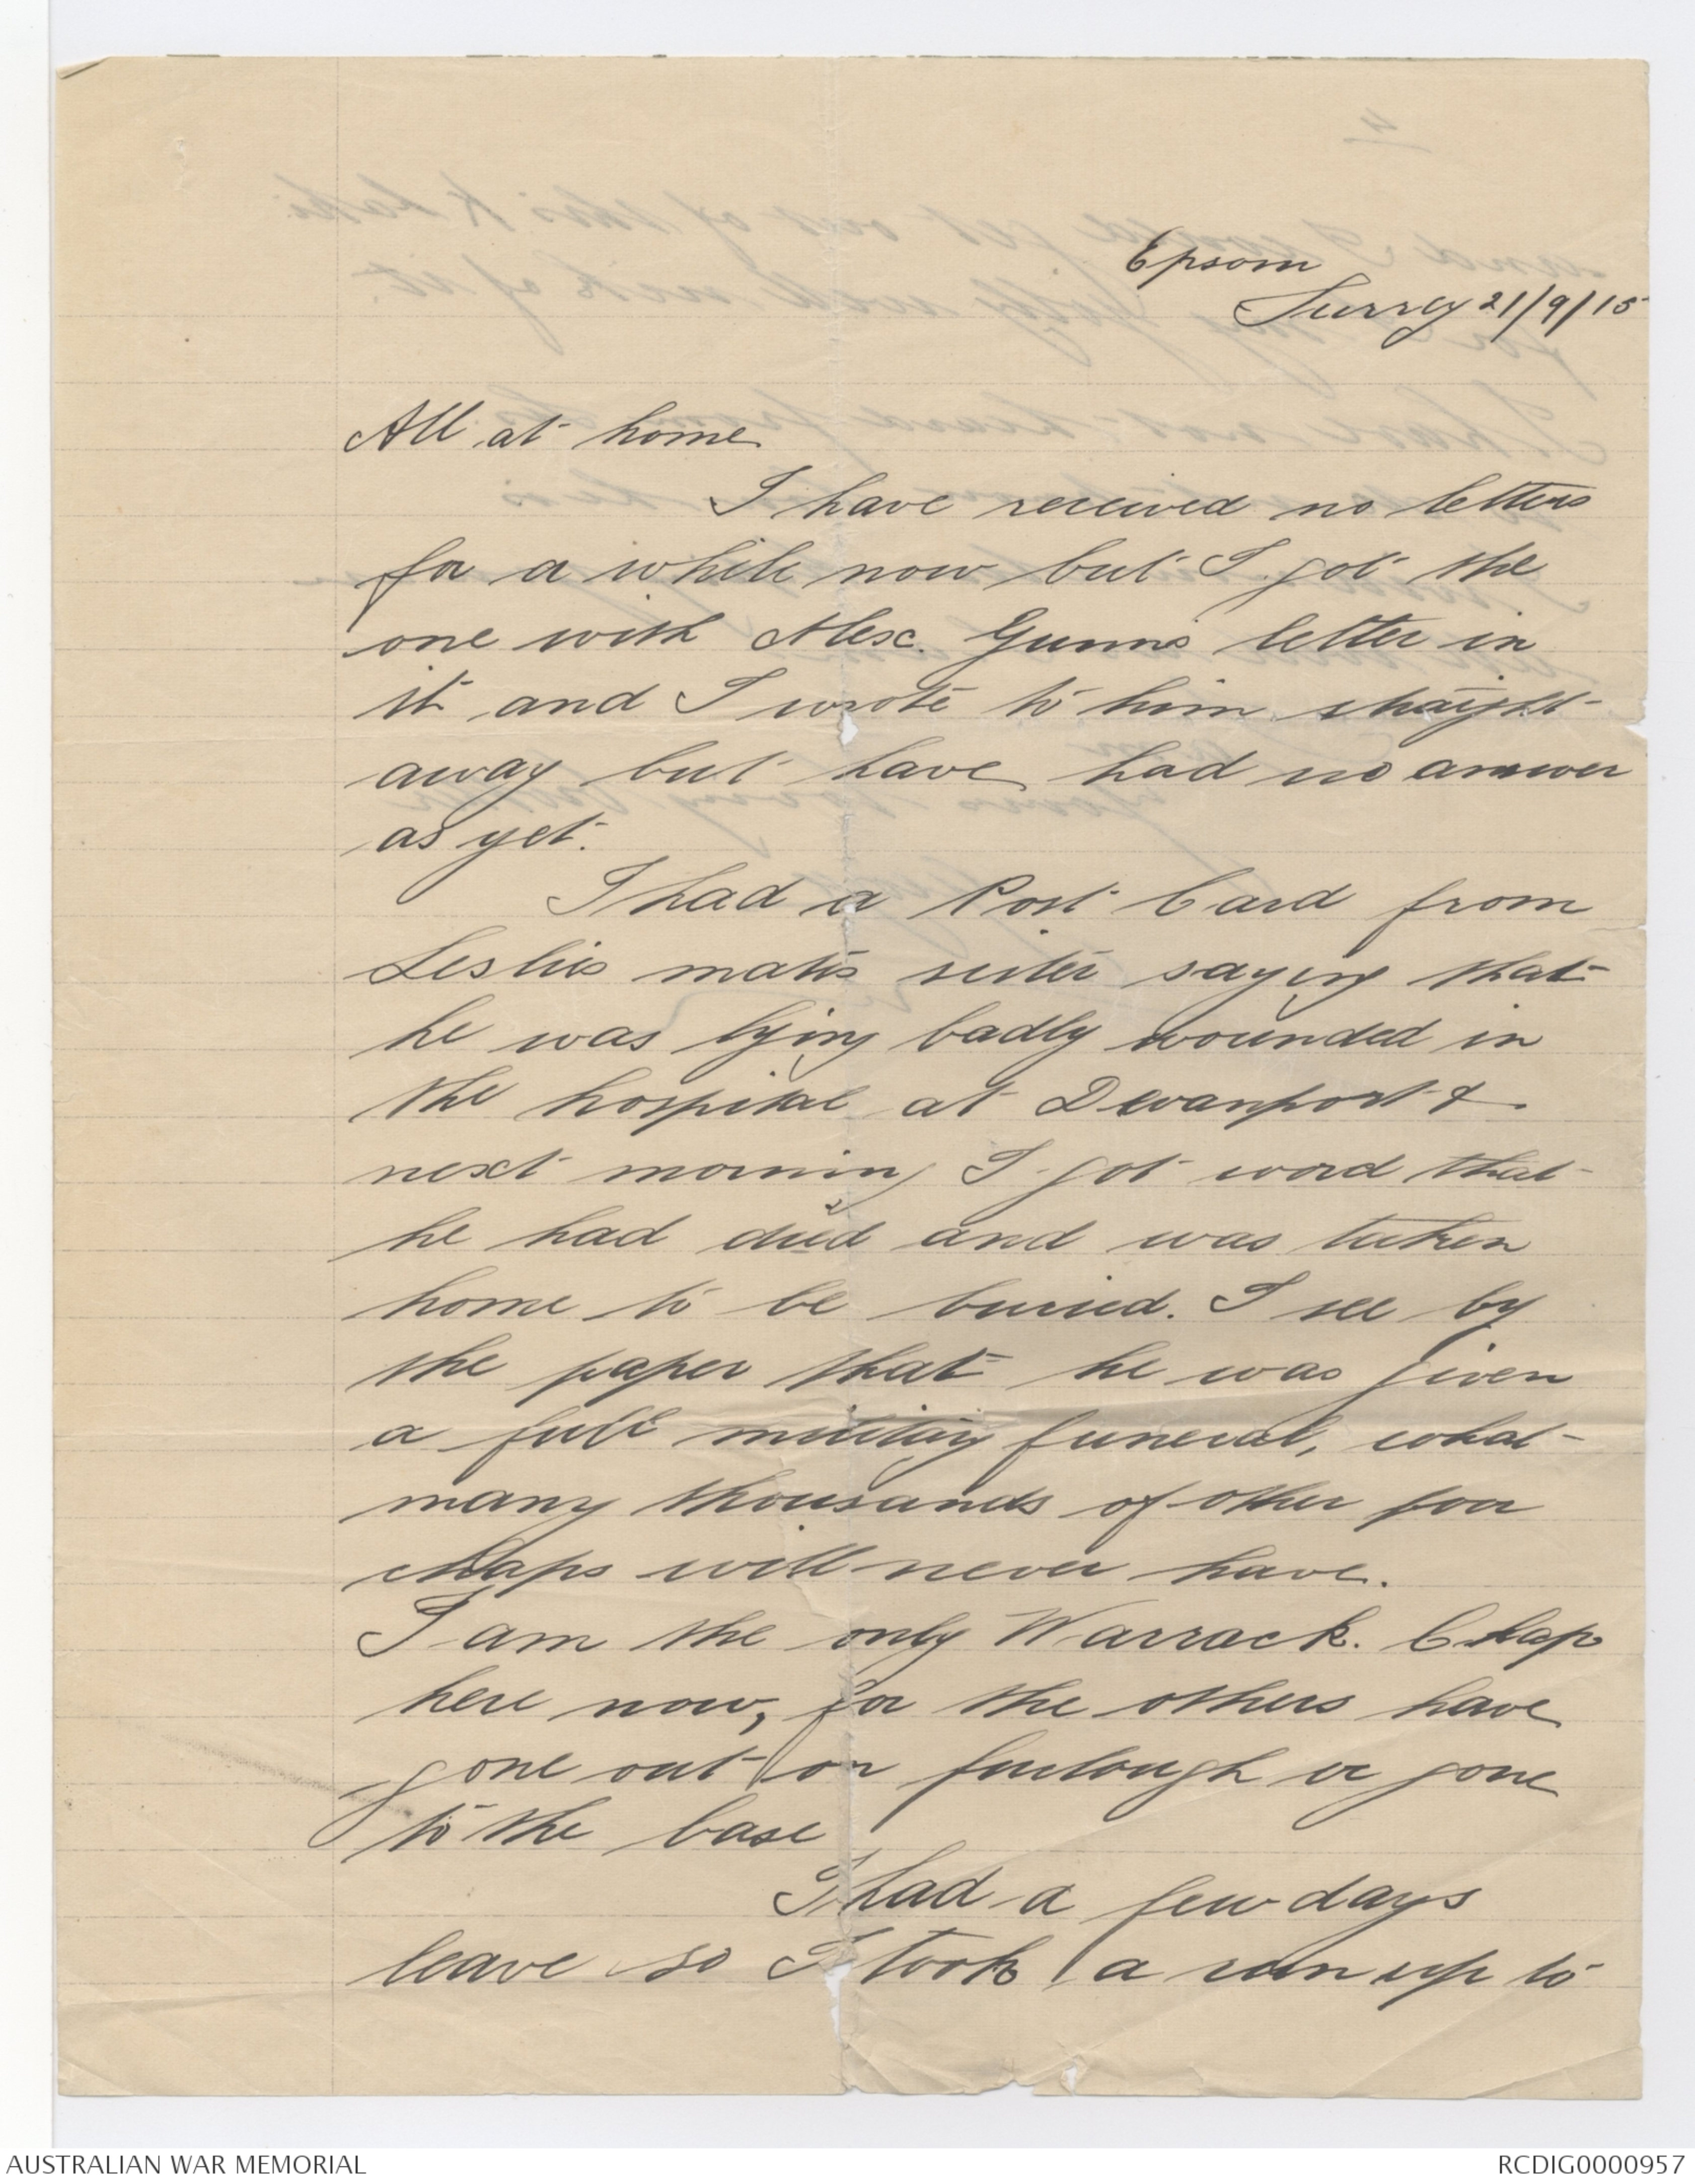 Epsom
Surry 21/9/15
All at home
I have received no letters
for a while now but I got the
one with Alex. Gunn's letter in
it and I wrote to him straight-
away but have had no answer
as yet.
I had a Post Card from
Leslies mates sister saying that
he was lying badly wounded in
the hospital at Devanport &
next morning I got word that
he had died and was taken
home to be buried. I see by
the paper that he was given
a full military funeral, what
many thousands of other poor
chaps will never have.
I am the only Warrack. Chap
here now, for the others have
gone out on furlough or gone
to the base
I had a few days
leave so I took a run up to
AUSTRALIAN WAR MEMORIAL
RCDIG0000957